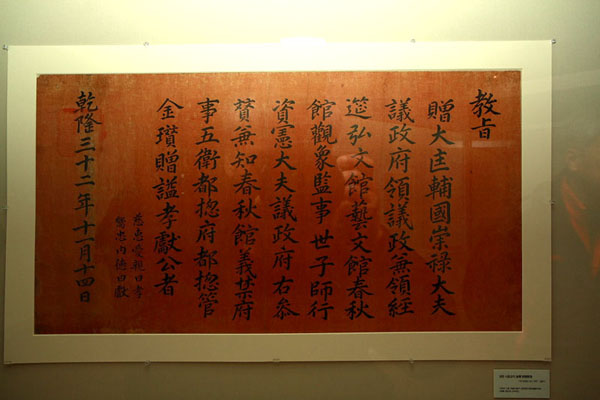 教旨
贈大匡輔國崇祿大夫
議政府領議政兼領經
筵弘文館藝文館春秋
館觀象監事 世子師行
資憲大夫議政府右參
贊兼知春秋館義禁府
事五衛都摠府都摠管
金瓚贈諡孝獻公者
慈惠愛親曰孝
嚮忠內德曰獻
乾隆三十二年十一月十四日